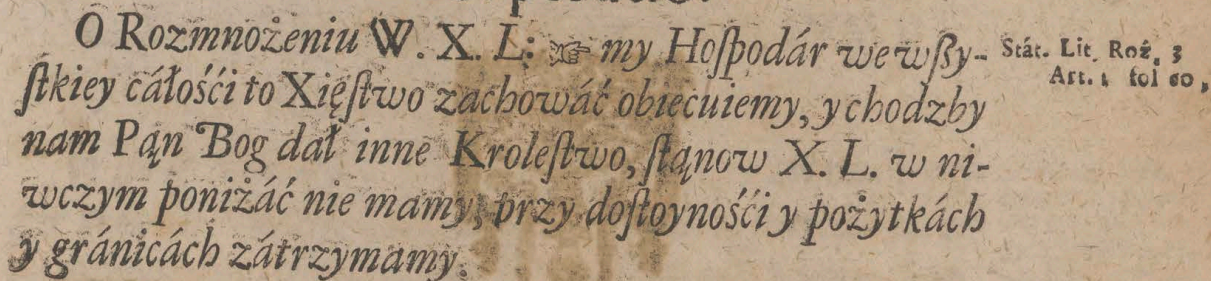 O Rozmnożeniu W. X. L: ☞ my Hoſpodár we wſzy-
ſtkiey cáłośći to Xięſtwo záchowáć obiecuiemy, y chodzby
nam Pąn Bog dał inne Kroleſtwo, ſtąnow X. L. w ni-
wczym poniżáć nie mamy, przy doſtoynośći y pożytkách
y gránicách zátrzymamy.
Stát. Lit. Roź. 3
Art. 1 fol 60,